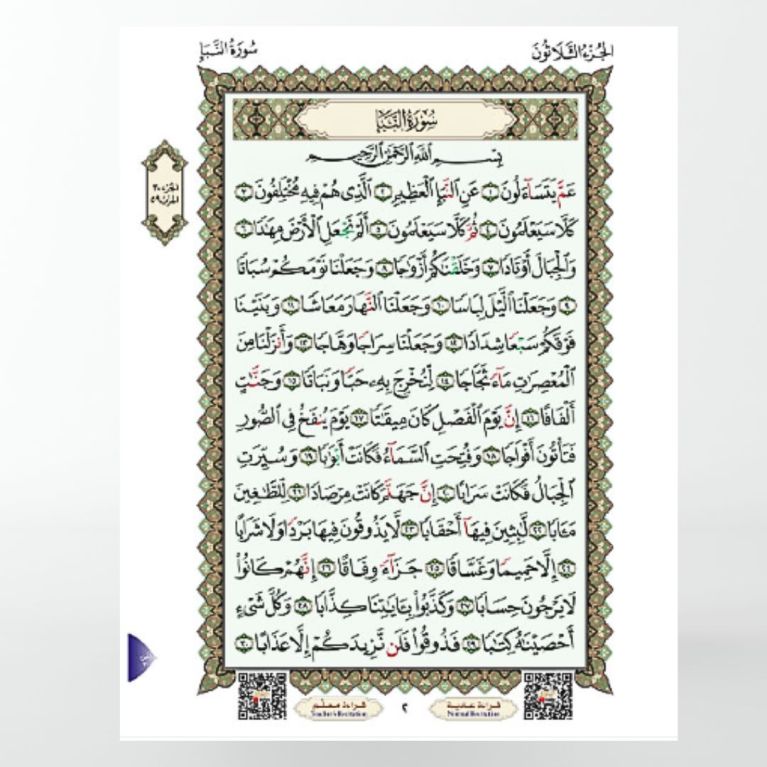 الجُزْءُ الثَّلَاثُونَ
سُورَةُ النَّبَإِ
سُورَةُ النَّبَإِ
بِسْمِ ٱللَّهِ ٱلرَّحْمَٰنِ ٱلرَّحِيمِ
عَمَّ يَتَسَآءَلُونَ ١ عَنِ ٱلنَّبَإِ ٱلْعَظِيمِ ٢ ٱلَّذِى هُمْ فِيهِ مُخْتَلِفُونَ ٣
كَلَّا سَيَعْلَمُونَ ٤ ثُمَّ كَلَّا سَيَعْلَمُونَ ٥ أَلَمْ نَجْعَلِ ٱلْأَرْضَ مِهَٰدًا ٦
وَٱلْجِبَالَ أَوْتَادًا ٧ وَخَلَقْنَٰكُمْ أَزْوَٰجًا ٨ وَجَعَلْنَا نَوْمَكُمْ سُبَاتًا
٩ وَجَعَلْنَا ٱلَّيْلَ لِبَاسًا ١٠ وَجَعَلْنَا ٱلنَّهَارَ مَعَاشًا ١١ وَبَنَيْنَا
فَوْقَكُمْ سَبْعًا شِدَادًا ١٢ وَجَعَلْنَا سِرَاجًا وَهَّاجًا ١٣ وَأَنزَلْنَا مِنَ
ٱلْمُعْصِرَٰتِ مَآءً ثَجَّاجًا ١٤ لِّنُخْرِجَ بِهِۦ حَبًّا وَنَبَاتًا ١٥ وَجَنَّٰتٍ
أَلْفَافًا ١٦ إِنَّ يَوْمَ ٱلْفَصْلِ كَانَ مِيقَٰتًا ١٧ يَوْمَ يُنفَخُ فِى ٱلصُّورِ
فَتَأْتُونَ أَفْوَاجًا ١٨ وَفُتِحَتِ ٱلسَّمَآءُ فَكَانَتْ أَبْوَٰبًا ١٩ وَسُيِّرَتِ
ٱلْجِبَالُ فَكَانَتْ سَرَابًا ٢٠ إِنَّ جَهَنَّمَ كَانَتْ مِرْصَادًا ٢١ لِّلطَّٰغِينَ
مَـَٔابًا ٢٢ لَّٰبِثِينَ فِيهَآ أَحْقَابًا ٢٣ لَّا يَذُوقُونَ فِيهَا بَرْدًا وَلَا شَرَابًا
٢٤ إِلَّا حَمِيمًا وَغَسَّاقًا ٢٥ جَزَآءً وِفَاقًا ٢٦ إِنَّهُمْ كَانُوا۟
لَا يَرْجُونَ حِسَابًا ٢٧ وَكَذَّبُوا۟ بِـَٔايَٰتِنَا كِذَّابًا ٢٨ وَكُلَّ شَىْءٍ
أَحْصَيْنَٰهُ كِتَٰبًا ٢٩ فَذُوقُوا۟ فَلَن نَّزِيدَكُمْ إِلَّا عَذَابًا ٣٠
الجزء ٣٠
الحزب ٥٩
قراءة عادية
Normal Recitation
٢
قراءة معلم
Teacher's Recitation